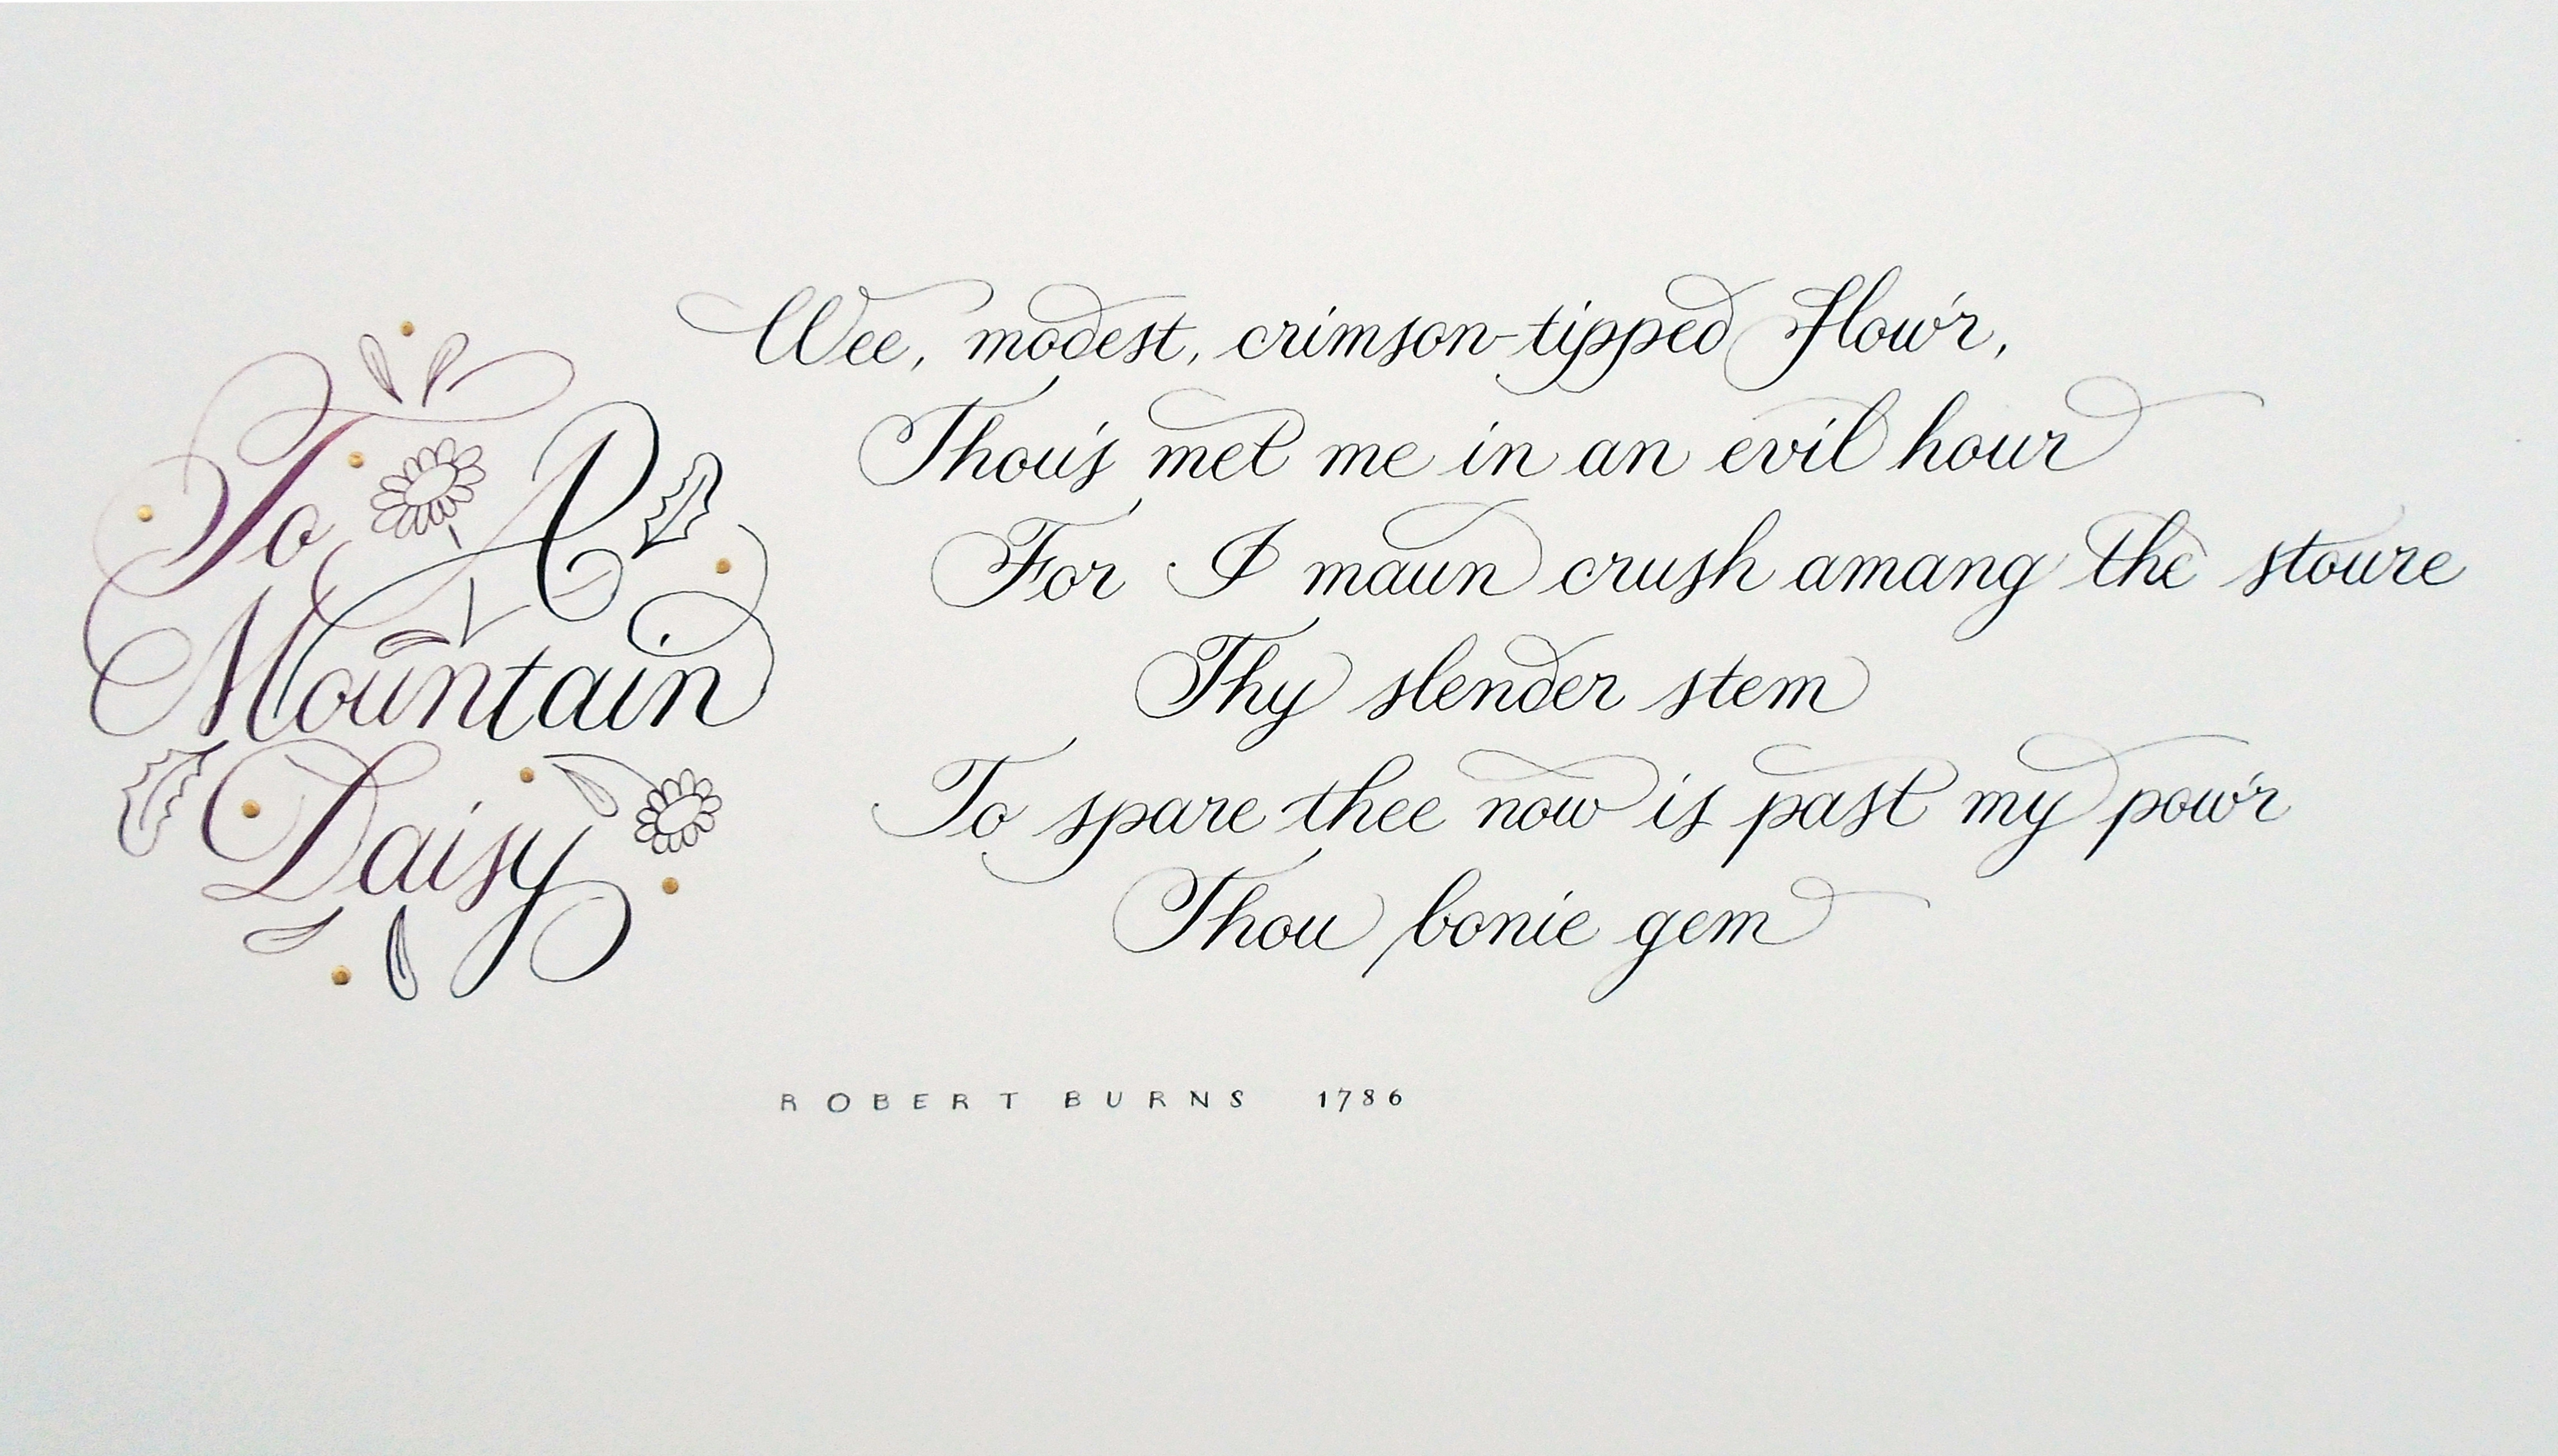 To A
Mountain
Daisy
Wee, modest, crimson-tipped flow'r,
Thou's met me in an evil hour
For I maun crush amang the stoure
Thy slender stem
To spare thee now is past my pow'r
Thou bonie gem
ROBERT BURNS 1786